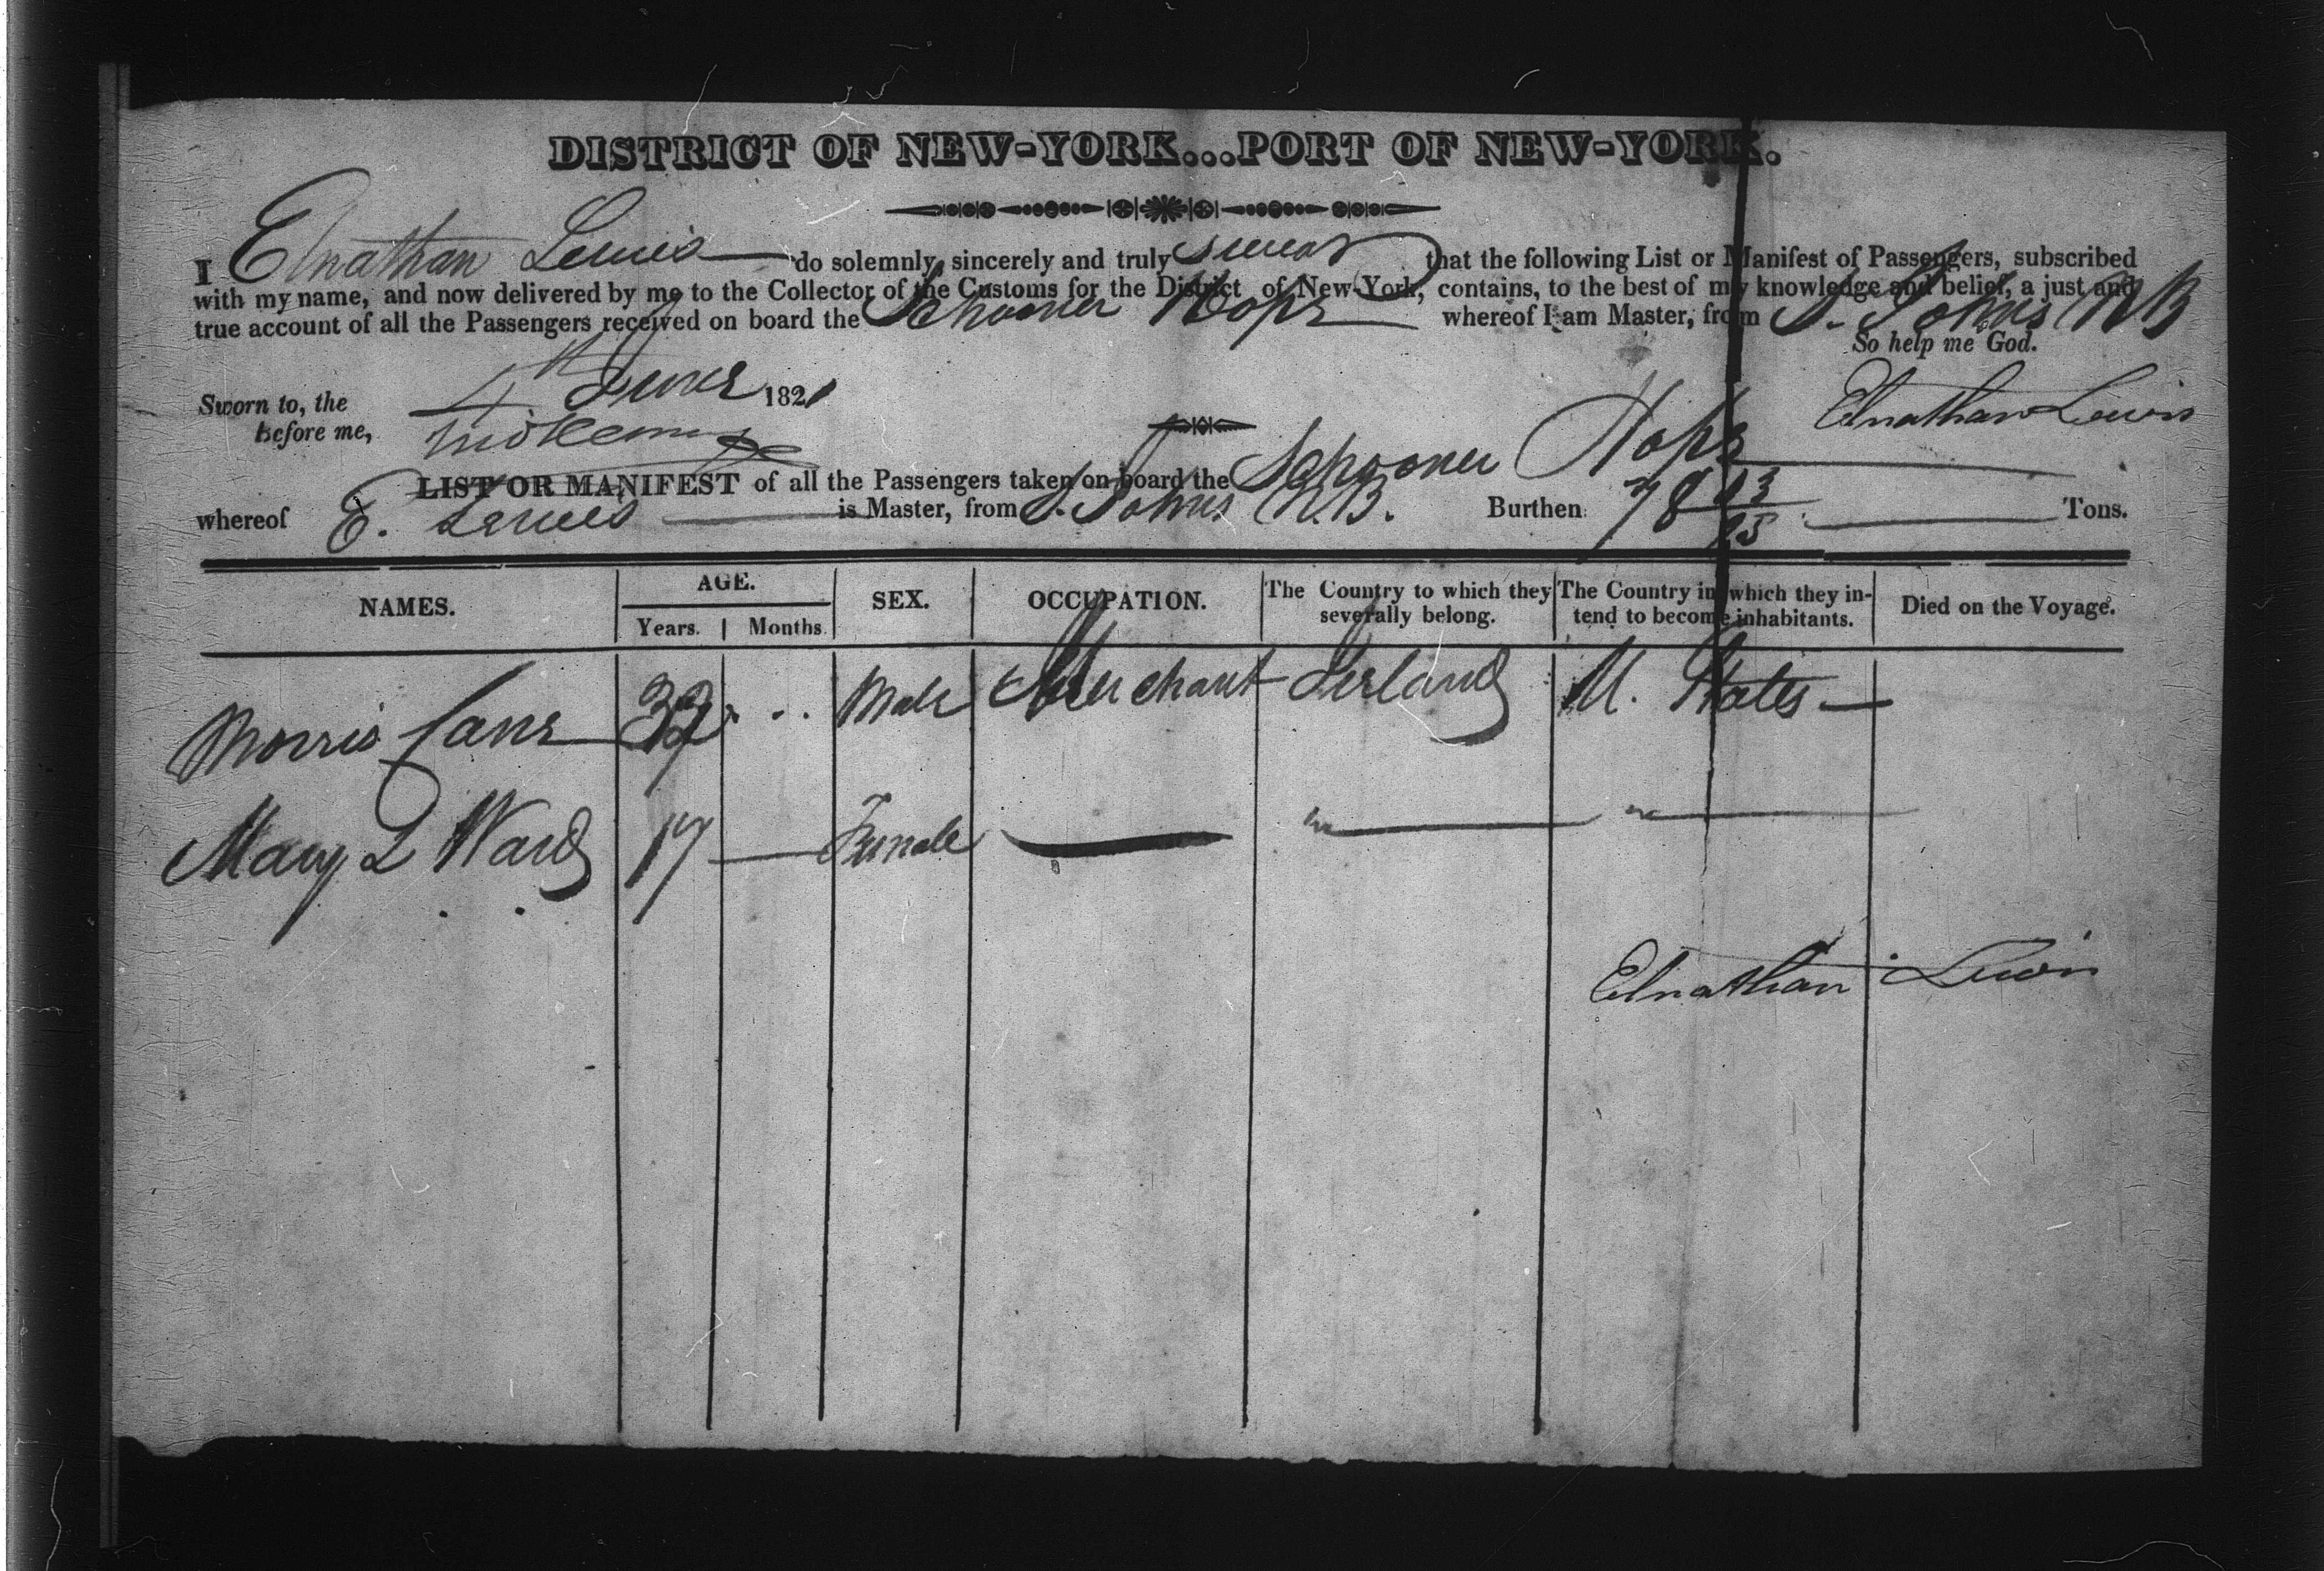 DISTRICT OF NEW-YORK...PORT OF NEW-YORK.
I Elnathan Lewis do solemnly, sincerely and truly swear that the following List or Manifest of Passengers, subscribed
with my name, and now delivered by me to the Collector of the Customs for the District of New-York, contains, to the best of my knowledge and belief, a just and
true account of all the Passengers received on board the Schooner Hope whereof I am Master, from S. Johns NB
So help me God.
Sworn to, the 4th June 1821
Before me,
Elnathan Lewis
LIST OR MANIFEST of all the Passengers taken on board the Schooner Hope
whereof E. Lewis is Master, from S. Johns N.B. Burthen 78 /95 Tons.
NAMES. AGE. SEX. OCCUPATION. The Country to which they severally belong. The Country in which they intend to become inhabitants. Died on the Voyage.
Years. Months.
Morris Male Merchant Ireland U. States —
Mary Ward 17 — Female — " — " —
Elnathan Lewis